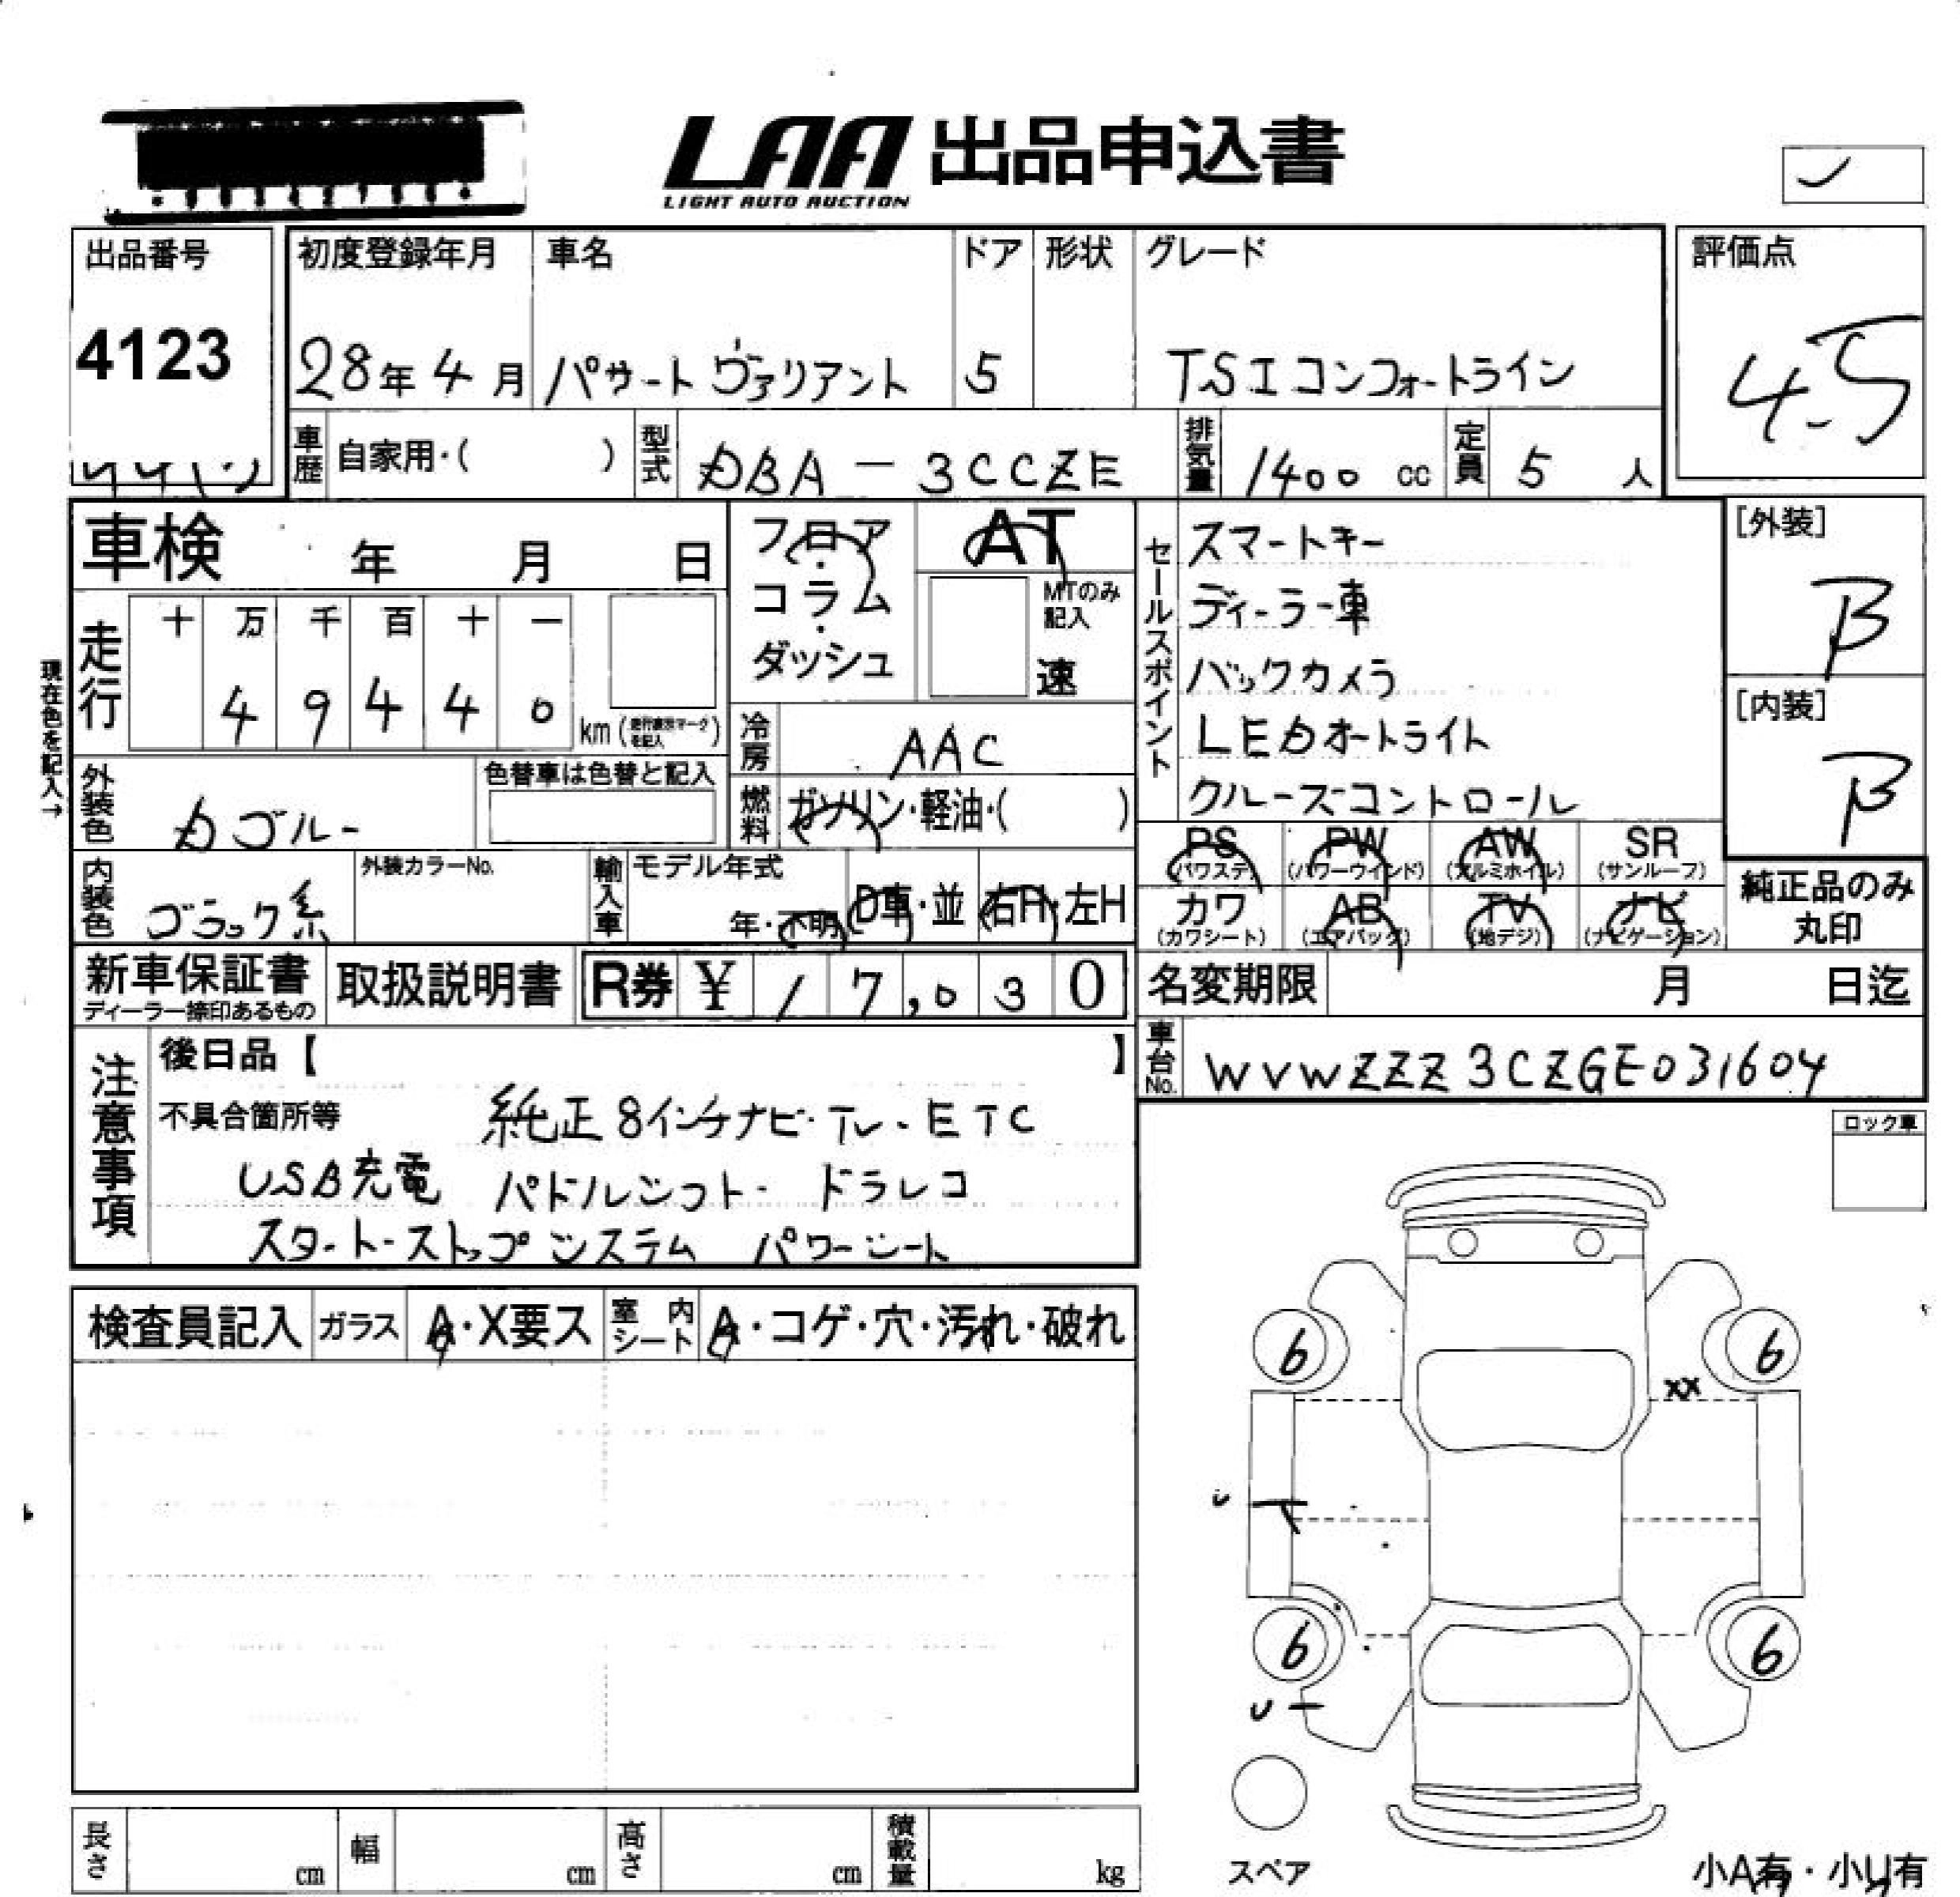 LAA 出品申込書
LIGHT AUTO AUCTION
出品番号
4123
初度登録年月 車名 ドア 形状 グレード
28年4月 パサートヴァリアント 5 TSIコンフォートライン
評価点
4.5
車歴 自家用・( ) 型式 DBA-3CCZE 排気量 1400 cc 定員 5 人
車検 年 月 日
フロア・コラム・ダッシュ
AT
MTのみ記入
速
走行 十 万 千 百 十 一
4 9 4 4 0 km (走行直次マーク を記入)
現在色を記入→
冷房 AAC
外装色 Dブルー
色替車は色替と記入
燃料 ガソリン・軽油・( )
内装色 ブラック系
外装カラーNo.
輸入車 モデル年式
年・不明 D車・並 右H・左H
セールスポイント
スマートキー
ディーラー車
バックカメラ
LEDオートライト
クルーズコントロール
[外装]
B
[内装]
B
PS (パワステ) PW (パワーウインド) AW (アルミホイル) SR (サンルーフ)
カワ (カワシート) AB (エアバッグ) TV (地デジ) ナビ (ナビゲーション)
純正品のみ
丸印
新車保証書
ディーラー捺印あるもの
取扱説明書 R券 ¥ 17,030
名変期限 月 日迄
車台No. WVWZZZ3CZGE031604
注意事項
後日品【 】
不具合箇所等 純正8インチナビ・TV・ETC
USB充電 パドルシフト・ドラレコ
スタート・ストップシステム パワーシート
ロック車
検査員記入 ガラス A・X要ス 室内シート A・コゲ・穴・汚れ・破れ
6 6
XX
U
6 6
U
スペア
長さ cm 幅 cm 高さ cm 積載量 kg
小A有・小U有